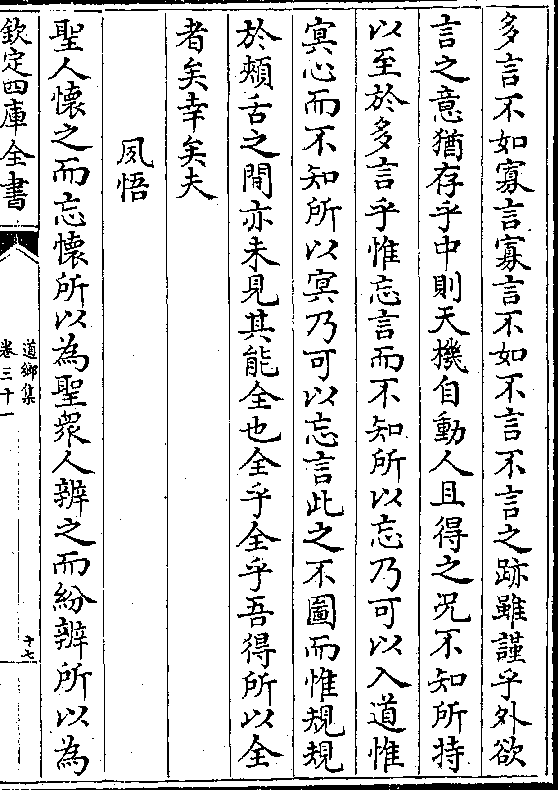 多言不如寡言寡言不如不言不言之跡雖謹乎外欲
言之意猶存乎中則天機自動人且得之況不知所持
以至於多言乎惟忘言而不知所以忘乃可以入道惟
冥心而不知所以冥乃可以忘言此之不圖而惟規規
於頰舌之間亦未見其能全也全乎全乎吾得所以全
者矣幸矣夫
夙悟
聖人懷之而忘懷所以為聖衆人辨之而紛辨所以為
欽定四庫全書
道鄉集
卷三十一
十七